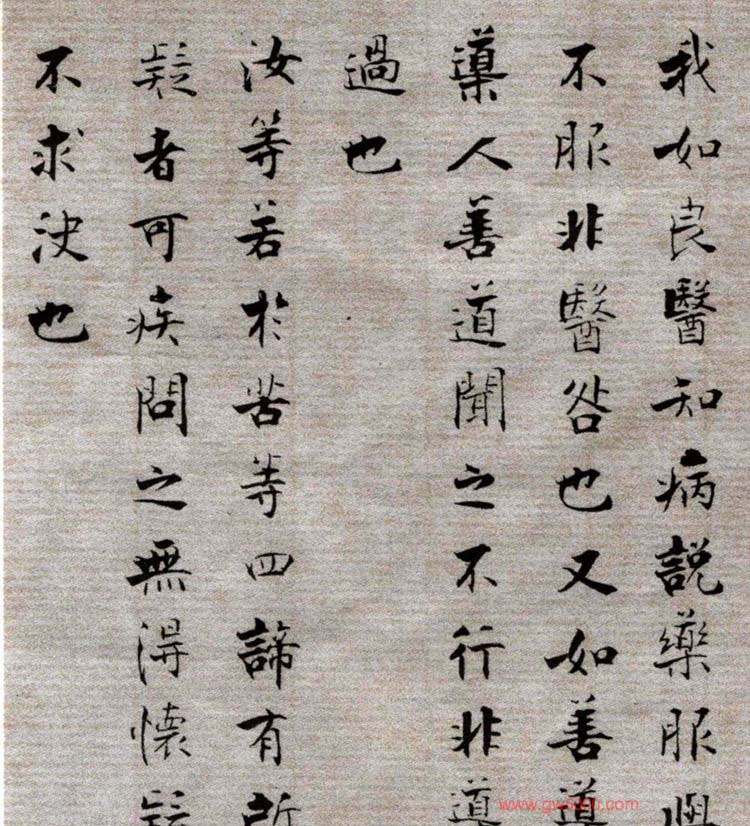 我如良醫知病説藥服與
不服非醫咎也又如善導
導人善道聞之不行非導
過也
汝等若於苦等四諦有所
疑者可疾問之無得懷疑
不求決也